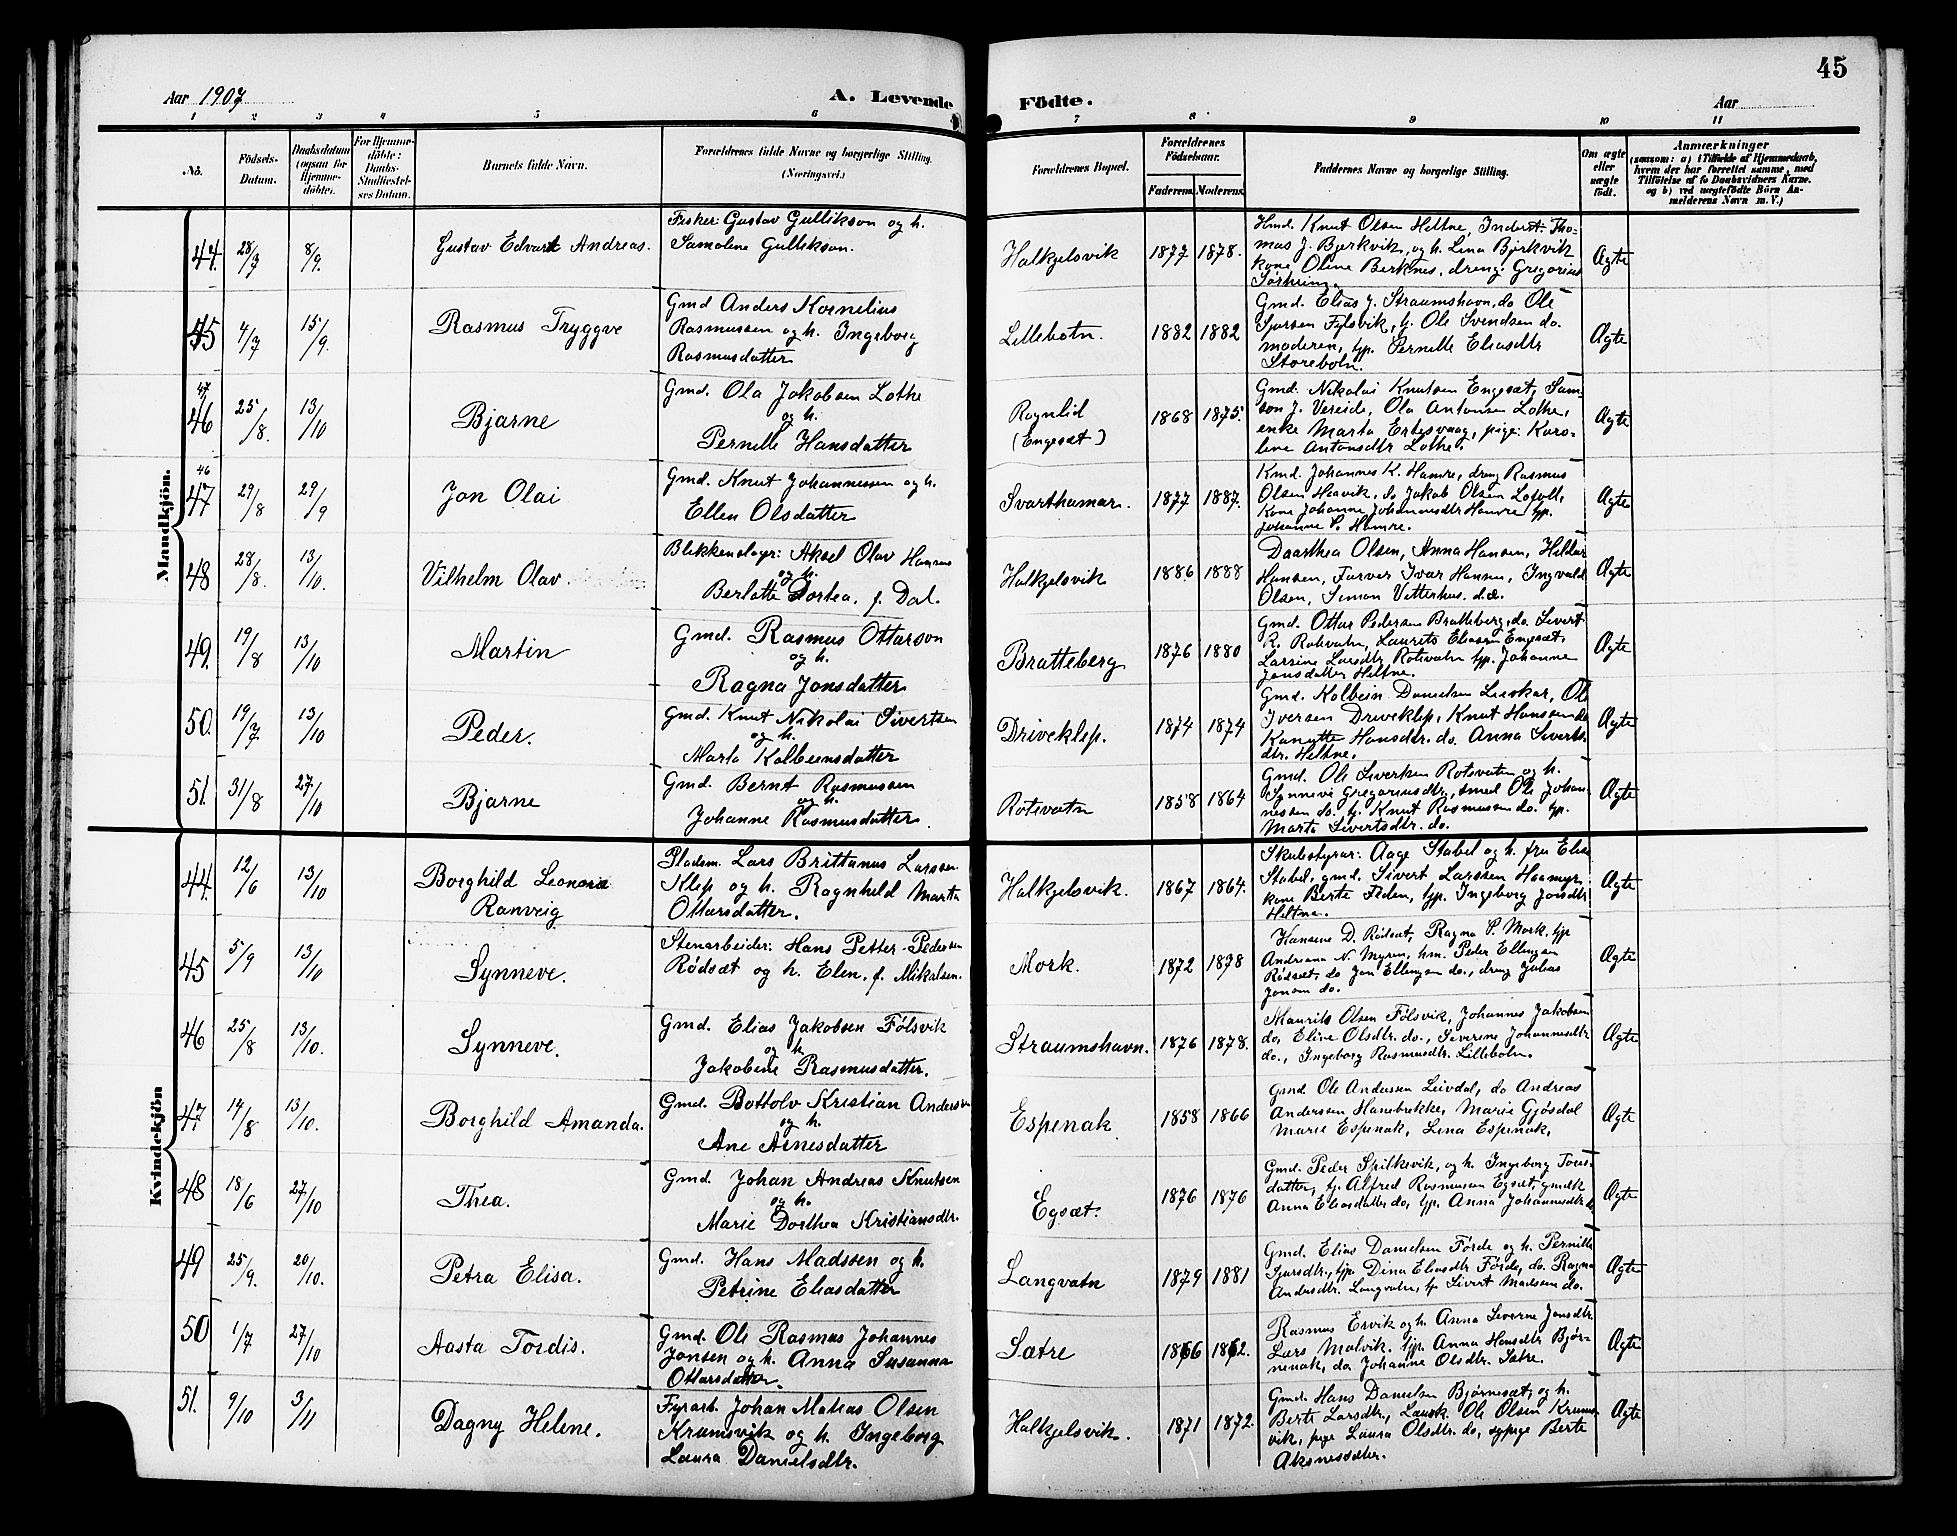 45
Aar 1907
A. Levende
Födte.
Aar
1 2 3 4 5 6 7 8 9 10 11
No.
Födsels-Datum.
Daabsdatum (ogsaa for Hjemme-döbte).
For Hjemme-döbte: Daabs-Stadfæstel-ses Datum.
Barnets fulde Navn.
Forældrenes fulde Navne og borgerlige Stilling. (Næringsvei.)
Forældrenes Bopæl.
Forældrenes Födselsaar.
Faderens. Moderens.
Faddernes Navne og borgerlige Stilling.
Om ægte eller uægte födt.
Anmærkninger
(saasom: a) i Tilfælde af Hjemmedaab,
hvem der har forrettet samme, med
Tilföielse af to Daabsvidners Navne,
og b) ved uægtefödte Börn An-
melderens Navn m. V.)
Mandkjön.
44. 28/7 8/9. Gustav Edvart Andreas.
Fisker: Gustav Gullikson og h.
Samoline Gullikson.
Halkjelsvik 1877 1878.
Gmd. Knut Olsen Heltne, Inderst. Tho-
mas J. Bjerkvik, og h. Lina Bjerkvik
kone Oline Berknes, dreng: Gregorius
Ægte
45 4/7 15/9. Rasmus Tryggve
Gmd Anders Kornelius
Rasmussen og h. Ingeborg
Rasmusdatter
Lillebotn. 1882 1882
Gmd. Elias J. Straumshavn, do Ole
Sjursen Fylsvik, Ole Svendsen do.
moderen, typ. Pernille Eliasdtr
Storebotn.
Ægte
47
46 25/8. 13/10 Bjarne
Gmd. Ola Jakobsen Lothe
og h.
Pernille Hansdatter
Rognlid
(Engesæt) 1868 1875.
Gmd. Nikolai Knutsen Engesæt, Sam-
son J. Vereide, Ola Antonsen Lothe,
enke Marta Ertesvaag, pige: Karo-
line Antonsdtr Lothe.
Ægte
46
47 29/8 29/9 Jon Olai
Gmd. Knut Johannessen og h.
Ellen Olsdatter
Svarthamar. 1877 1887.
Kmd. Johannes K. Hamre, dreng Rasmus
Olsen do Jakob Olsen
Kone Johanne Johannesdtr Hamre typ.
Johanne P. Hamre.
Ægte
48 28/8. 13/10. Vilhelm Olav.
Blikkenslager: Aksel Olav Hansen
og h.
Berlotte Dortea, f. Dal.
Halkjelsvik 1886 1888
Daarthea Olsen, Anna Hansen, Hildur
Hansen, Farver Ivar Hansen, Ingvald
Olsen, Simon Vitterhus.
Ægte
49. 19/8 13/10 Martin
Gmd. Rasmus Ottarson
og h.
Ragna Jonsdatter
Bratteberg 1876 1880
Gmd. Ottar Pedersen Bratteberg, do. Sivert
R. Rotevatn, Laurits Eliassen Engesæt,
Larsine Larsdtr Rotevatn typ. Johanne
Jonsdatter Heltne.
Ægte
50. 19/7 13/10 Peder.
Gmd. Knut Nikolai Sivertsen
og h.
Marta Kolbeinsdatter
Driveklep. 1874 1874
Gmd. Kolbein Danielsen Ol
Iversen Driveklep, Knut Hanssen do
Hansdtr. do. Anna Siverts-
dtr. Heltne.
Ægte
51. 31/8 27/10 Bjarne
Gmd. Bernt Rasmussen
og h.
Johanne Rasmusdatter.
Rotevatn 1858 1864
Gmd. Ole Sivertsen Rotevatn og h.
Synneve Gregoriusdtr, smed Ole Johan-
nessen do. Knut Rasmussen do. typ.
Marta Sivertsdtr. do.
Ægte
Kvindekjön
44. 12/6 13/10 Borghild Leonora
Ranveig
Pladsm. Lars Brittanus Larssen
Klep og h. Ragnhild Marta
Ottarsdatter.
Halkjelsvik. 1867 1864.
Skulestyrar: Aage Stabel og h. fru Elise
Stabel, gmd. Sivert Larssen Haamyr,
kone Berte Feden, typ. Ingeborg Jonsdtr
Heltne.
Ægte
45 5/9 13/10 Synneve.
Stenarbeider: Hans Petter Pedersen
Rødsæt og h. Elen, f. Mikalsen.
Mork. 1872 1878
Hansine D. Rødsæt, Ragna P. Mork. typ
Andriana N. Myren, hm. Peder Ellingsen
Rødsæt, do Jon Ellingsen do., dreng Julius
Jonsen do.
Ægte
46 25/8 13/10. Synneve.
Gmd. Elias Jakobsen Følsvik
og h.
Jakobine Rasmusdatter.
Straumshavn. 1876 1878.
Maurits Olsen Følsvik, Johannes Jakobsen
do, Eline Olsdtr. do., Severine Johannesdtr
do., Ingeborg Rasmusdtr. Lillebotn.
Ægte
47 14/8 13/10. Borghild Amanda.
Gmd. Bottolv Kristian Andersen
og h.
Ane Arnesdatter
Espenak 1858 1866
Gmd. Ole Anderssen Leivdal, do Andreas
Anderssen Hanebrekke, Marie Gjøsdal
Marie Espenak, Lina Espenak,
Ægte
48 18/6 27/10 Thea.
Gmd. Johan Andreas Knutsen
og h.
Marie Dorthea Kristiansdtr.
Egsæt. 1876 1876
Gmd. Peder Spilkevik, og h. Ingeborg Tores-
datter, Alfred Rasmussen Egsæt, gmdk
Anna Eliasdatter do, typ. Anna Johannesdtr do
Ægte
49 25/9. 20/10. Petra Elisa.
Gmd. Hans Madssen og h.
Petrine Eliasdatter
Langvatn 1879 1881
Gmd. Elias Danielsen Førde og h. Pernille
Sjursdtr., typ. Dina Eliasdtr Førde, do. Ragna
Andersdtr. Langvatn, Sivert Madssen do.
Ægte
50 1/7 27/10 Aasta Tordis.
Gmd. Ole Rasmus Johannes
Jonsen og h. Anna Susanna
Ottarsdatter.
Sætre 1866 1862.
Rasmus Ervik og h. Anna Severine Jonsdtr.
Lars Molvik. typ. Anna Hansdtr Bjør-
nenak, do. Johanne Olsdtr. Sætre.
Ægte
51. 9/10 3/11 Dagny Helene.
Fyrarb. Johan Matias Olsen
Krumsvik og h. Ingeborg
Laura Danielsdtr.
Halkjelsvik. 1871 1872.
Gmd. Hans Danielsen Bjørnesæt, og h.
Berte Larsdtr., Ole Olsen Krums-
vik, pige Laura Olsdtr. do, sypige Berte
Aksnesdatter.
Ægte